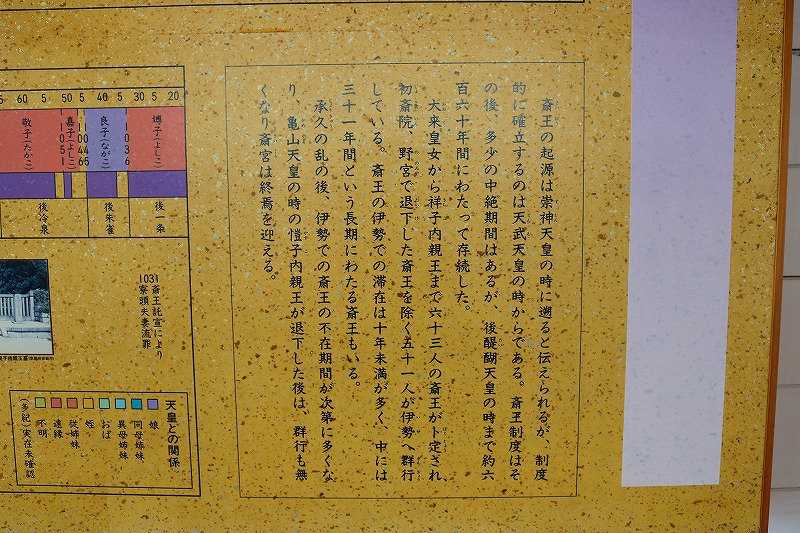 斎王の起源は崇神天皇の時に遡ると伝えられるが、制度
的に確立するのは天武天皇の時からである。斎王制度はそ
の後、多少の中絶期間はあるが、後醍醐天皇の時まで約六
百六十年間にわたって存続した。
大来皇女から祥子内親王まで六十三人の斎王が卜定され、
初斎院、野宮で退下した斎王を除く五十一人が伊勢へ群行
している。斎王の伊勢での滞在は十年未満が多く、中には
三十一年間という長期にわたる斎王もいる。
承久の乱の後、伊勢での斎王の不在期間が次第に多くな
り、亀山天皇の時の愷子内親王が退下した後は、群行も無
くなり斎宮は終焉を迎える。
5 60 5 50 5 40 5 30 5 20
嫥子(よしこ)
1036
良子(ながこ)
1045
1046
嘉子(よしこ)
1051
敬子(たかこ)
後一条
後朱雀
後冷泉
1031斎王託宣により
寮頭夫妻流罪
天皇との関係
娘
同母姉妹
異母姉妹
おば
姪
従姉妹
遠縁
不明
(多紀)実在未確認